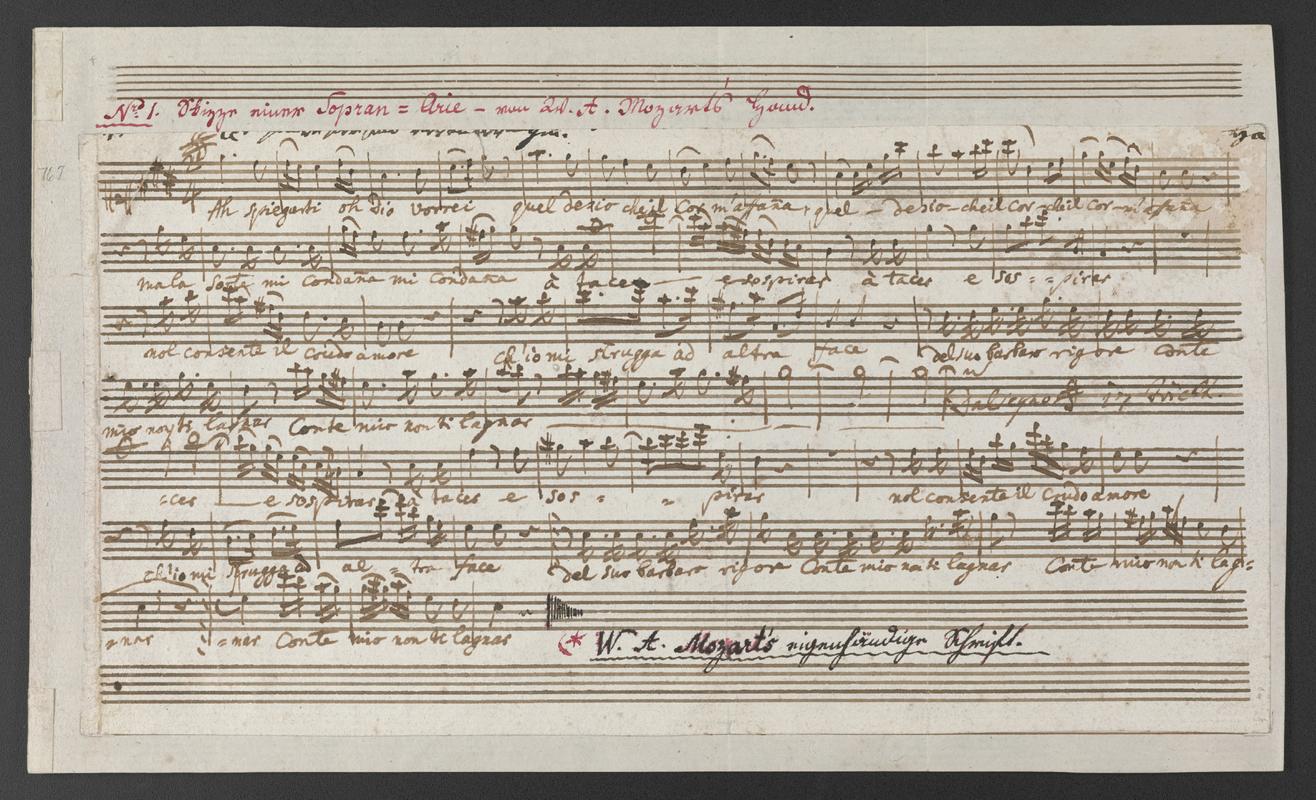 No 1. Skizze einer Sopran = Arie – von W. A. Mozart's Hand.
767
Ah spiegarti oh Dio vorrei quel desio che il Cor m'affaña, quel – desio – che il Cor – che il Cor – m'affaña
ma la Sorte mi Condaña mi Condaña à tacer e sospirar à tacer e sos - - pirar
nol consente il Crudo amore ch'io mi strugga ad altra face del suo barbaro rigore Conte
mio non ti lagnar Conte mio non ti lagnar Dal segno
= cer e sospirar à tacer e sos = = pirar nol consente il Crudo amore
ch'io mi strugga ad al = tra face del suo barbaro rigore Conte mio no ti lagnar Conte mio no ti lag =
= nar = nar Conte mio non ti lagnar
(* W. A. Mozart's eigenhändige Schrift.